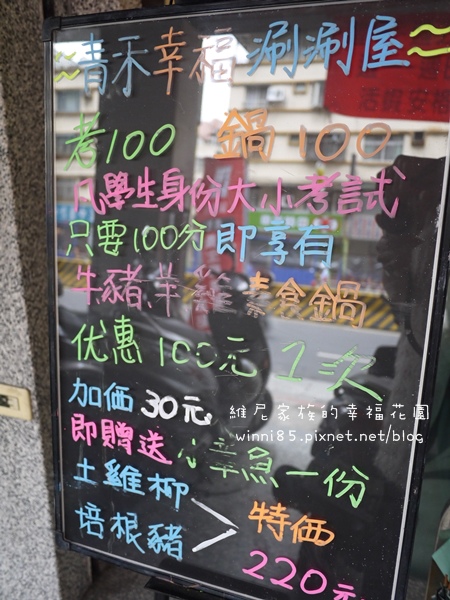 青禾幸福涮涮屋
考100 鍋100
凡學生身份大小考試
只要100分即享有
牛豬羊雞素食鍋
优惠100元1次
加価30元
即贈送小章魚一份
土雞柳
培根豬
特価
220元
維尼家族的幸福花園
winni85.pixnet.net/blog